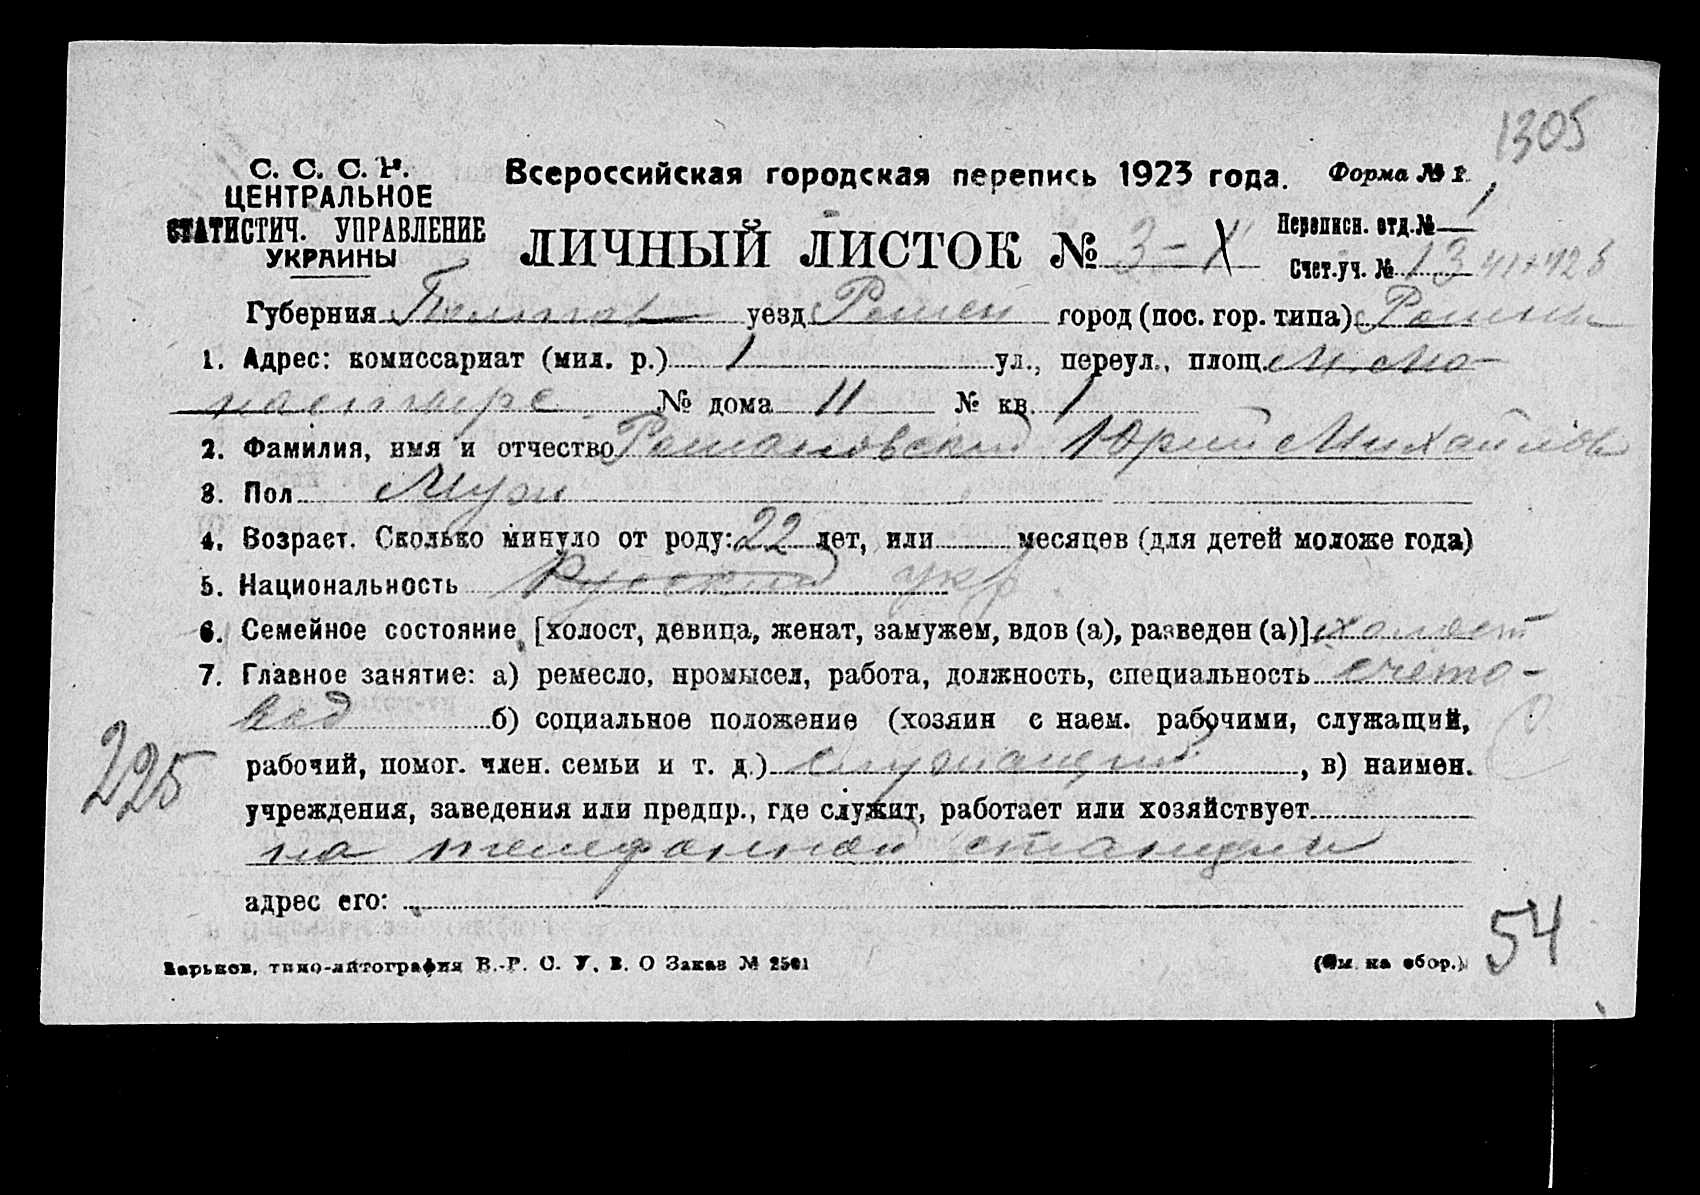 1305
С. С. С. Р.
ЦЕНТРАЛЬНОЕ
СТАТИСТИЧ. УПРАВЛЕНИЕ
УКРАИНЫ
Всероссийская городская перепись 1923 года.
Форма № 1.
ЛИЧНЫЙ ЛИСТОК № 3-
Переписн. отд. № 1
Счет. уч. № 13
Губерния Полтав уезд Ромен город (пос. гор. типа) Ромны
1. Адрес: комиссариат (мил. р.) 1 ул., переул., площ. М. Мо-
настыр № дома 11 № кв. 1
2. Фамилия, имя и отчество Романовский Юрий Михайлов
3. Пол Муж
4. Возраст. Сколько минуло от роду: 22 лет, или месяцев (для детей моложе года)
5. Национальность Русский укр
6. Семейное состояние [холост, девица, женат, замужем, вдов (а), разведен (а)] холост
7. Главное занятие: а) ремесло, промысел, работа, должность, специальность счето-
вод б) социальное положение (хозяин с наем. рабочими, служащий,
рабочий, помог. член. семьи и т. д.) служащий, в) наимен.
учреждения, заведения или предпр., где служит, работает или хозяйствует
на телефонной станции
адрес его:
225
54
Харьков, типо-литография В.-Р. С. У. В. О Заказ № 2501
(См. на обор.)